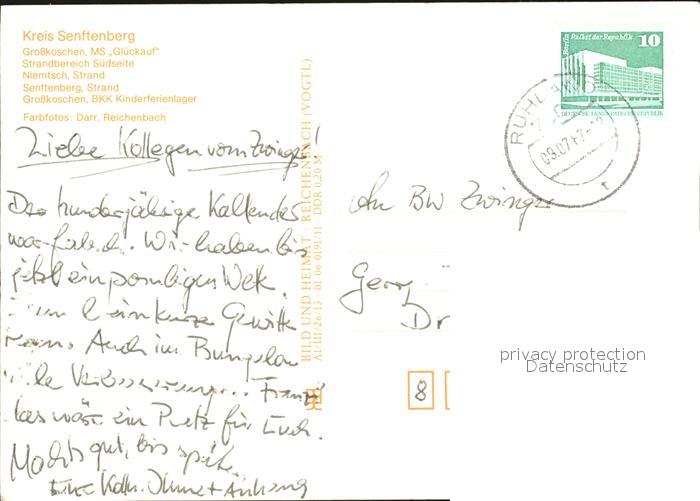 Kreis Senftenberg
Großkoschen, MS „Glückauf"
Strandbereich Südseite
Niemtsch, Strand
Senftenberg, Strand
Großkoschen, BKK Kinderferienlager
Farbfotos: Darr, Reichenbach
Liebe Kollegen vom Zwinger!
Der hundertjährige Kallender
war falsch. Wir haben bis
jetzt ein sonniges Wetter.
ein kurzer Gewitter
Auch im Bungalow
Verbesserung
das wär ein Platz für Euch.
Machts gut, bis später
Eure + Anhang
BILD UND HEIMAT · REICHENBACH (VOGTL)
A1/III/26/13 01 06 0191/11 DDR 0,20 M
Berlin Palast der Republik
10
DEUTSCHE DEMOKRATISCHE REPUBLIK
RUHLAND
An BW Zwinger
Dr
8
privacy protection
Datenschutz